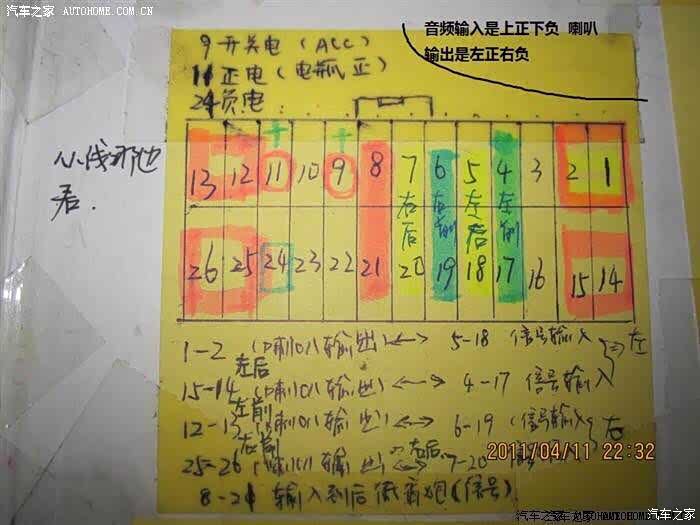 汽车之家 AUTOHOME.COM.CN
音频输入是上正下负 喇叭
输出是左正右负
9 开关电 (ACC)
11 正电 (电瓶正)
24 负电
+ +
13 12 11 10 9 8 7 6 5 4 3 2 1
右后 右前 左后 左前
26 25 24 23 22 21 20 19 18 17 16 15 14
1-2 (喇叭输出) ↔ 5-18 信号输入 左
左后
15-14 (喇叭输出) ↔ 4-17 信号输入
左前
12-13 (喇叭输出) ↔ 6-19 (信号输入 右
右前
25-26 (喇叭输出) ↔ 右后 7-20
8-21 输入到后低音炮(信号)
2011/04/11 22:32
AUTOHOME.COM.CN 汽车之家